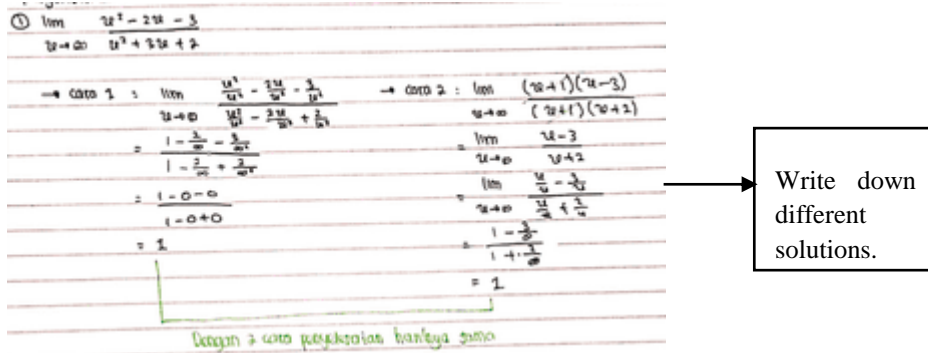 ① lim x² - 2x - 3
x→∞ x² + 3x + 2
→ cara 1 : lim x²/x² - 2x/x² - 3/x²
x→∞ x²/x² - 3x/x² + 2/x²
= (1 - 2/∞ - 3/∞²) / (1 - 3/∞ + 2/∞²)
= (1 - 0 - 0) / (1 - 0 + 0)
= 1
→ cara 2 : lim (x+1)(x-3)
x→∞ (x+1)(x+2)
= lim x-3
x→∞ x+2
= lim x/x - 3/x
x→∞ x/x + 2/x
= (1 - 3/∞) / (1 + 2/∞)
= 1
Dengan 2 cara penyelesaian hasilnya sama
Write down
different
solutions.